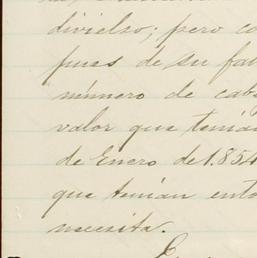 divielso; pero co
pues de su fal
número de cabe
valor que tenían
de Enero de 1.854
que tenían ento
necesita.